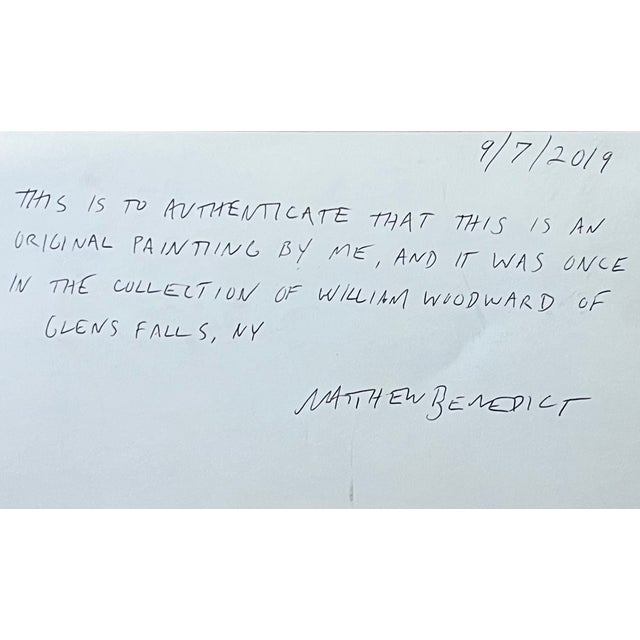 9/7/2019
THIS IS TO AUTHENTICATE THAT THIS IS AN
ORIGINAL PAINTING BY ME, AND IT WAS ONCE
IN THE COLLECTION OF WILLIAM WOODWARD OF
GLENS FALLS, NY
MATTHEW BENEDICT